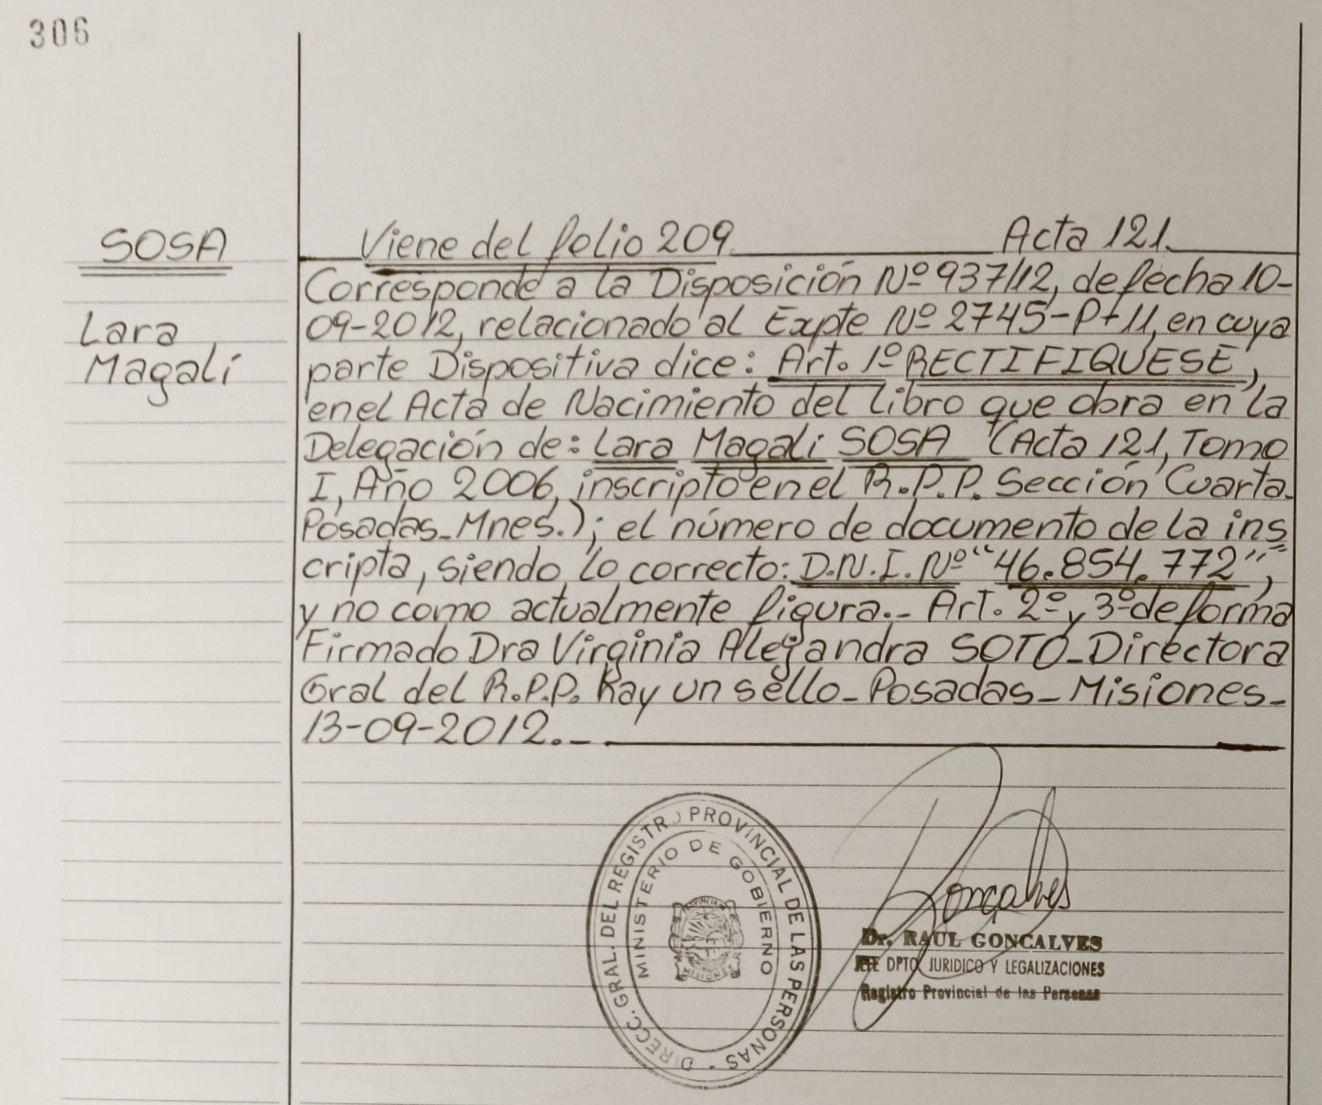 306
SOSA
Lara
Magalí
Viene del folio 209. Acta 121.
Corresponde a la Disposición Nº 937/12, de fecha 10-
09-2012, relacionado al Expte Nº 2745-P-11, en cuya
parte Dispositiva dice: Art. 1º RECTIFIQUESE,
en el Acta de Nacimiento del libro que obra en la
Delegación de: Lara Magalí SOSA (Acta 121, Tomo
I, Año 2006, inscripto en el R.P.P. Sección Cuarta-
Posadas-Mnes.); el número de documento de la ins
cripta, siendo lo correcto: D.N.I. Nº "46.854.772",
y no como actualmente figura.- Art. 2º y 3º de forma
Firmado Dra Virginia Alejandra SOTO-Directora
Gral del R.P.P. Hay un sello-Posadas-Misiones-
13-09-2012.-
DIRECC. GRAL. DEL REGISTRO PROVINCIAL DE LAS PERSONAS -
MINISTERIO DE GOBIERNO
PROVINCIA DE
MISIONES
Gonçalves
Dr. RAUL GONCALVES
JEFE DPTO JURIDICO Y LEGALIZACIONES
Registro Provincial de las Personas